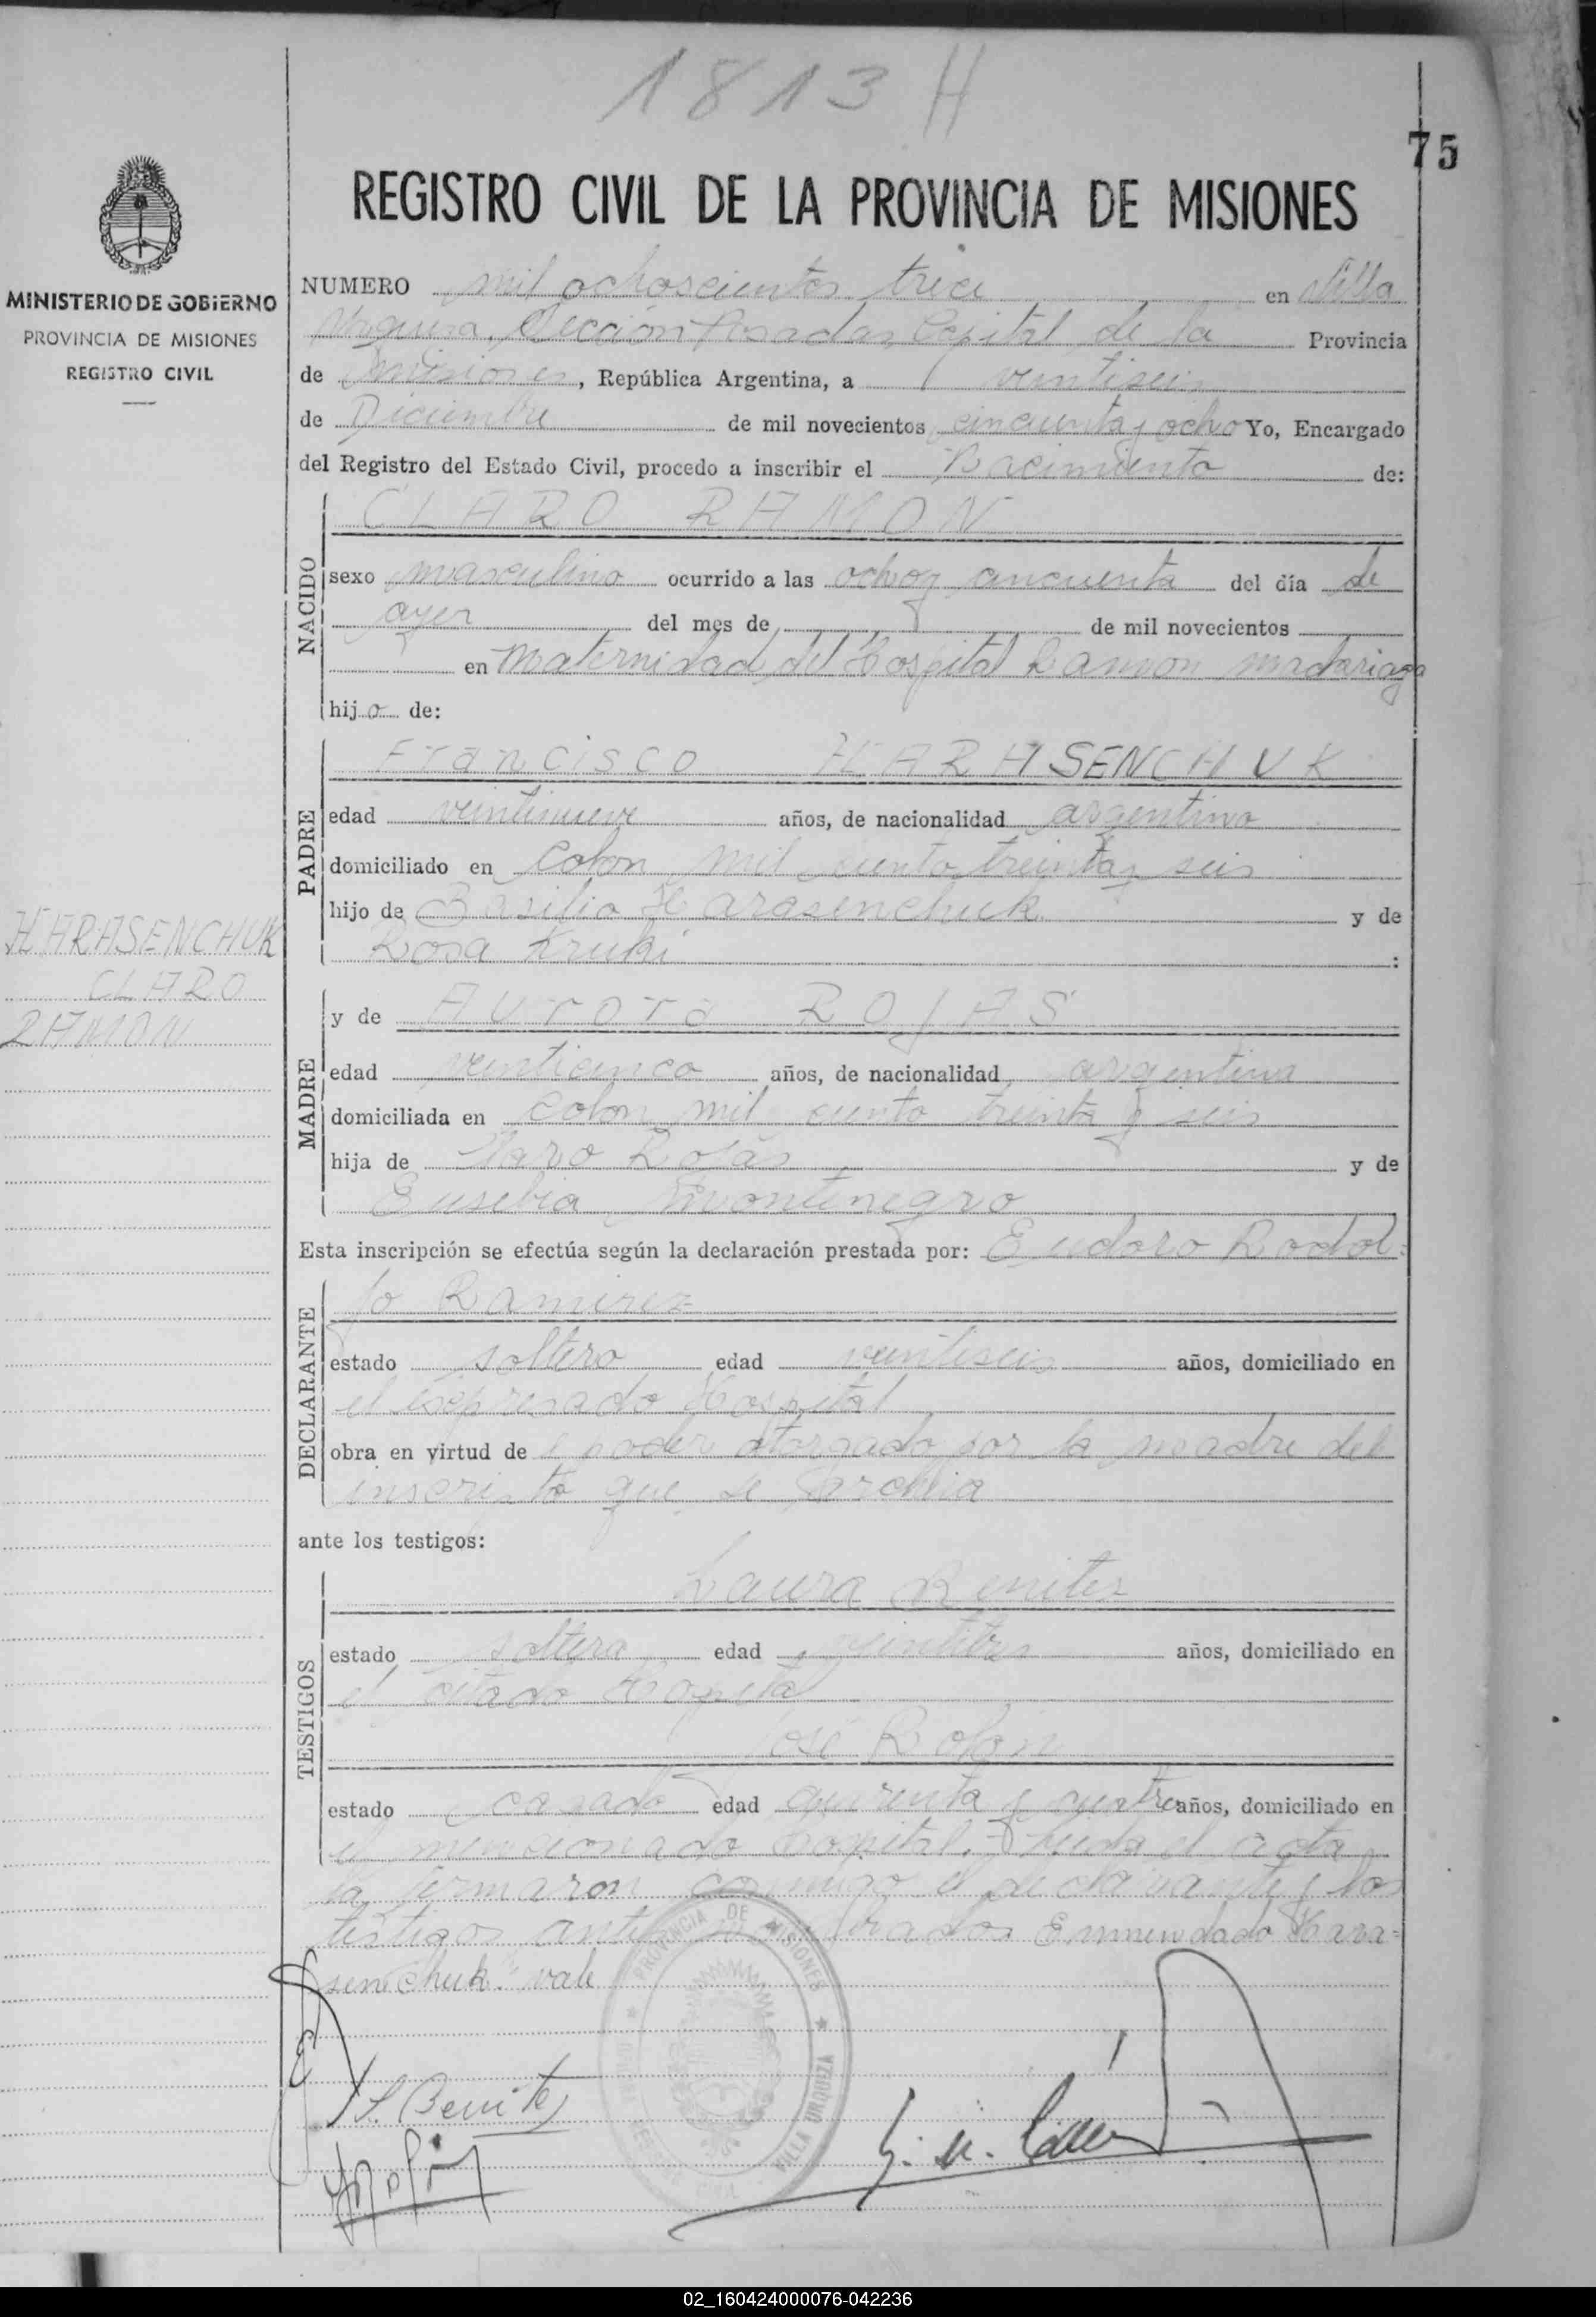 1813 H
75
REGISTRO CIVIL DE LA PROVINCIA DE MISIONES
MINISTERIO DE GOBIERNO
PROVINCIA DE MISIONES
REGISTRO CIVIL
NUMERO mil ochoscientos trece en Villa
Urquiza, Sección Posadas, Capital de la Provincia
de Misiones, República Argentina, a veintiseis
de Diciembre de mil novecientos cincuenta y ocho Yo, Encargado
del Registro del Estado Civil, procedo a inscribir el Nacimiento de:
NACIDO
CLARO RAMON
sexo masculino ocurrido a las ocho y cincuenta del día de
ayer del mes de de mil novecientos
en Maternidad del Hospital Ramon Madariaga
hijo de:
PADRE
Francisco HARASENCHUK
edad veintinueve años, de nacionalidad argentino
domiciliado en Colon mil ciento treinta y seis
hijo de Basilio Harasenchuk y de
Rosa Kruki :
HARASENCHUK
CLARO
RAMON
MADRE
y de Aurora ROJAS
edad veinticinco años, de nacionalidad argentina
domiciliada en Colon mil ciento treinta y seis
hija de Claro Rojas y de
Eusebia Montenegro
Esta inscripción se efectúa según la declaración prestada por: Eudoro Rodol=
DECLARANTE
fo Ramirez
estado soltero edad veintiseis años, domiciliado en
el expresado Hospital
obra en virtud de poder otorgado por la madre del
inscripto que se archiva
ante los testigos:
TESTIGOS
Laura Benitez
estado soltera edad veintitres años, domiciliado en
el citado Hospital
José Rolon
estado casado edad cuarenta y cuatro años, domiciliado en
el mencionado Hospital. Leida el acta
la firmaron conmigo el declarante y los
testigos antes nombrados. Enmendado "Hara=
senchuk" vale
PROVINCIA DE MISIONES
VILLA URQUIZA
CIVIL
L. Benitez
02_160424000076-042236